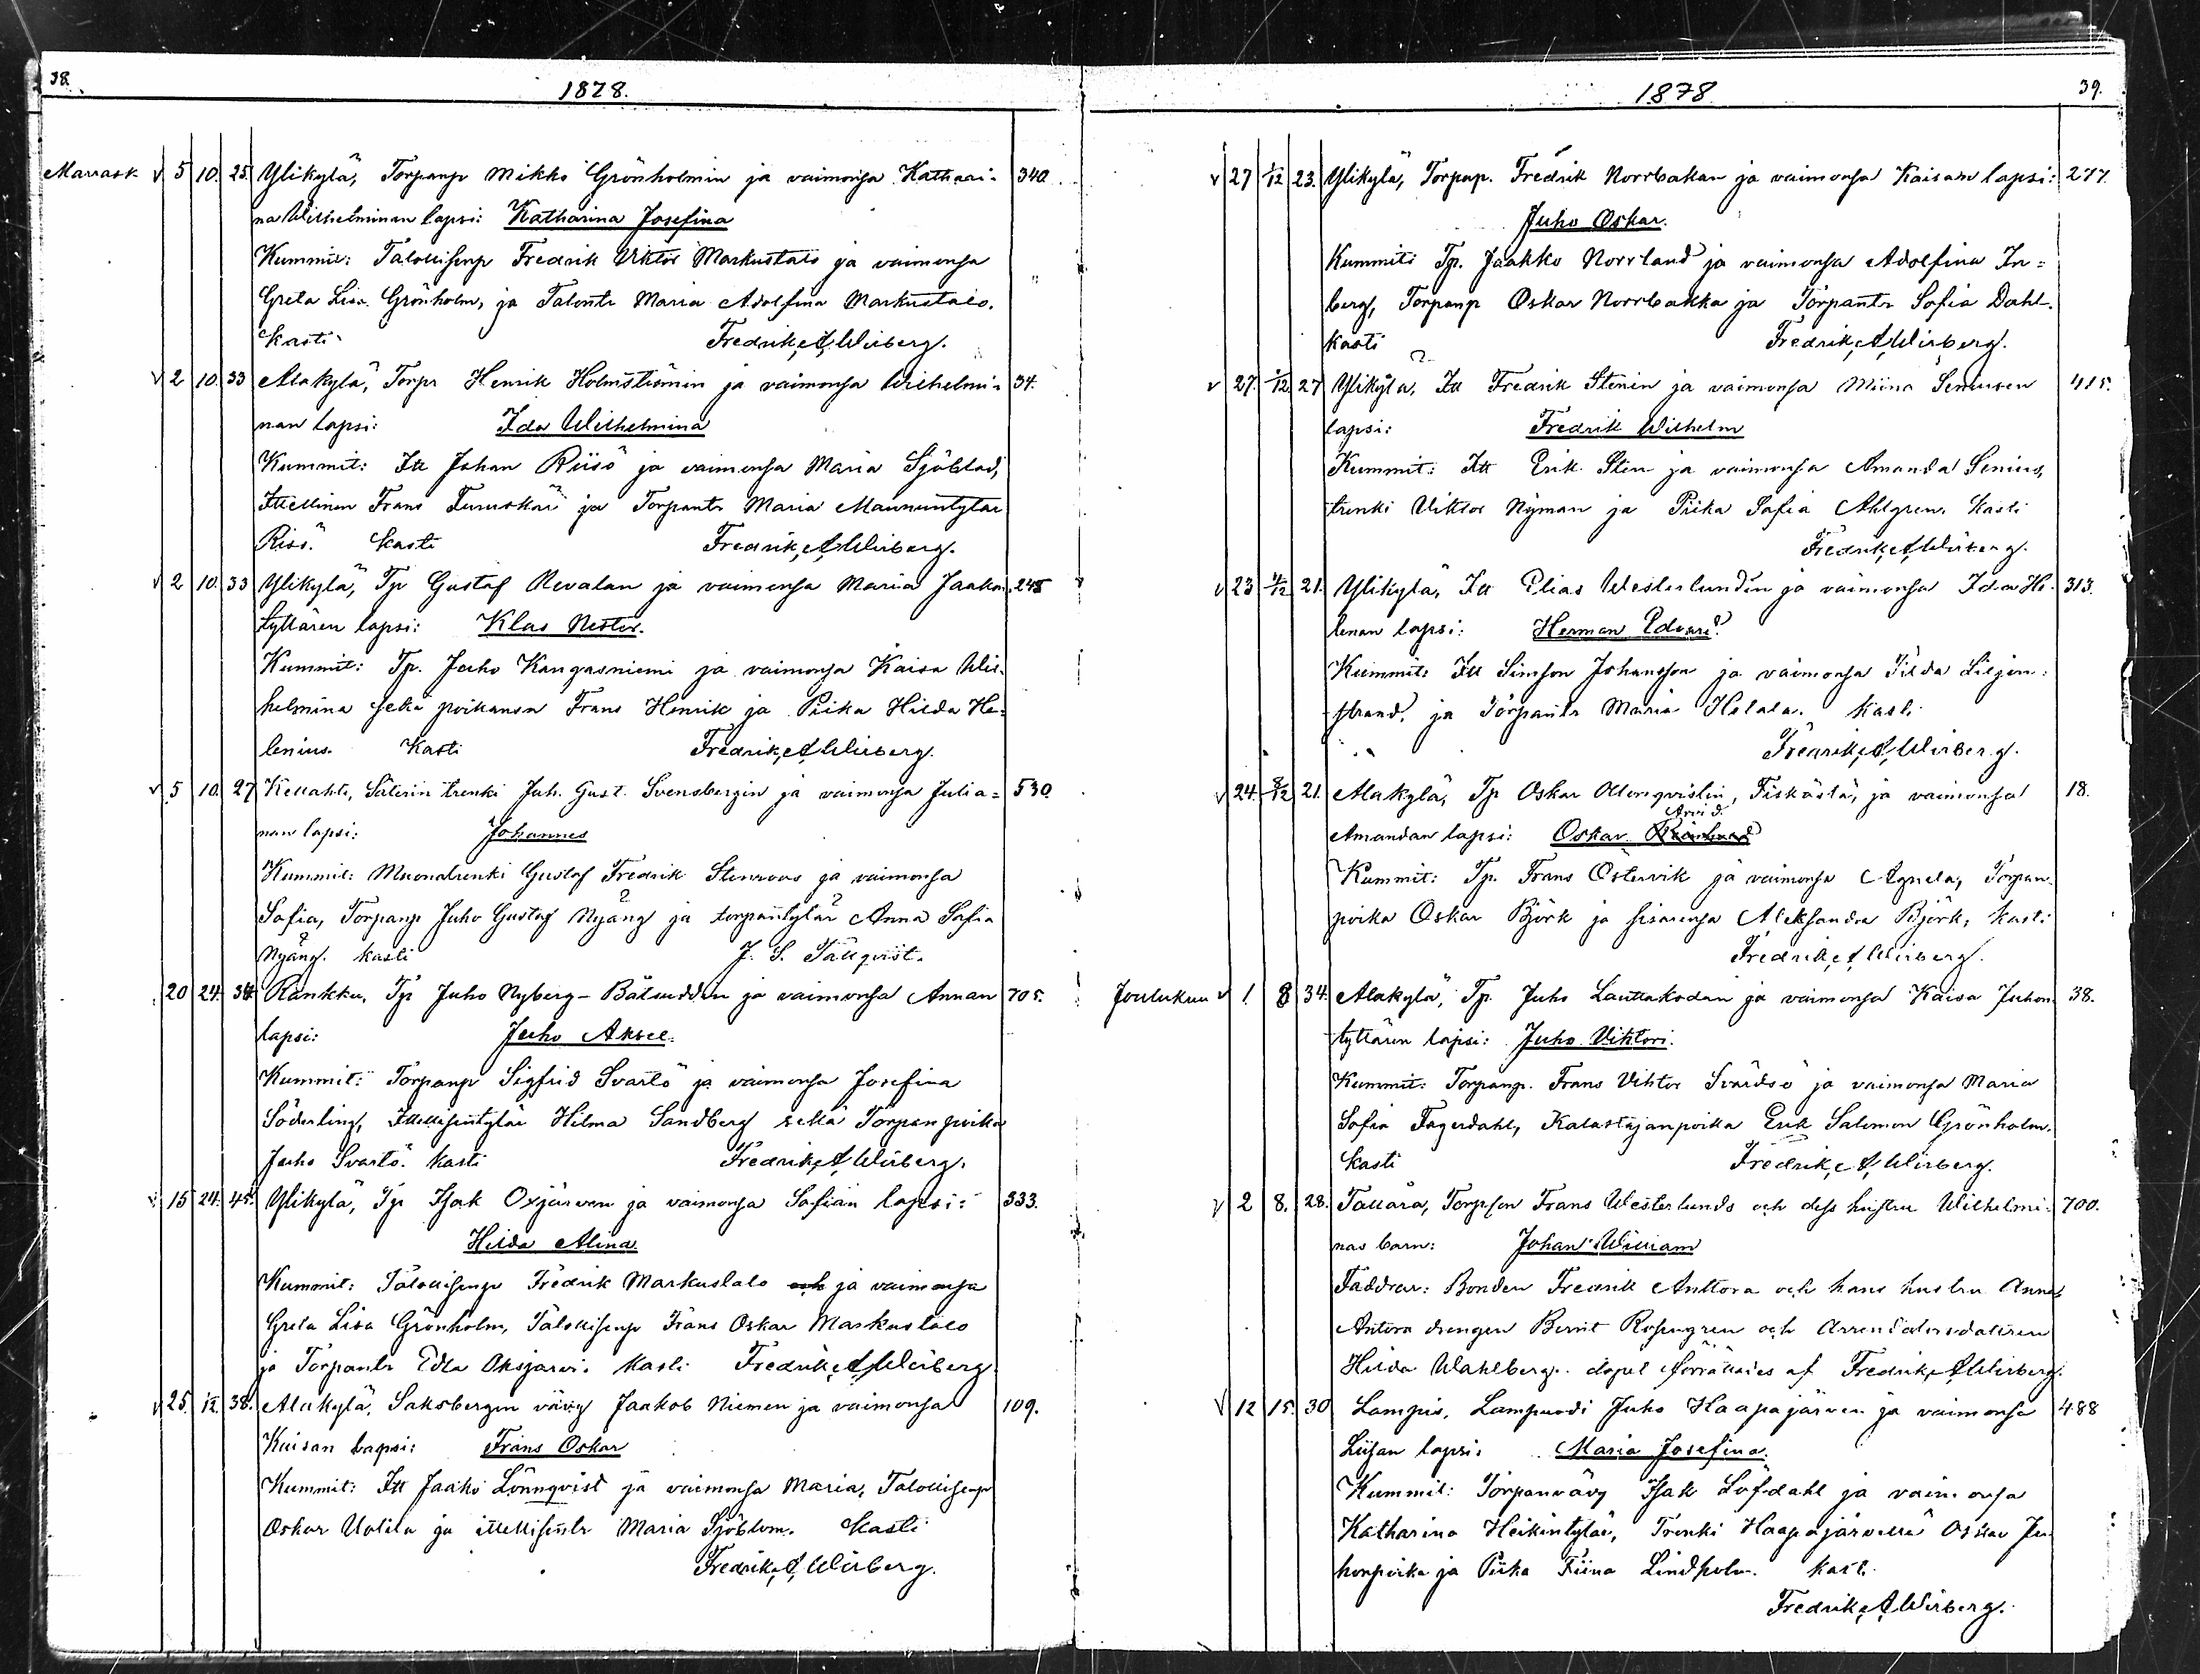 38.
1878.
Marrask v 5 10. 25. Ylikylä, Torpanp Mikko Grönholmin ja vaimonsa Kathari- 340.
na Wilhelminan lapsi: Katharina Josefina
Kummit: Talollisenp Fredrik Viktor Markustalo ja vaimonsa
Greta Lisa Grönholm, ja Talontr Maria Adolfina Markustalo.
Kasti Fredrik A Wirberg.
v 2 10 33 Alakylä, Torpr Henrik Holmströmin ja vaimonsa Wilhelmi- 34.
nan lapsi: Ida Wilhelmina
Kummit: Itt Johan Riisö ja vaimonsa Maria Sjöblad,
Itellinen Frans Furuskär ja Torpantr Maria Maununtytär
Risö. Kasti Fredrik A Wirberg.
v 2 10. 33 Ylikylä, Tp Gustaf Revalan ja vaimonsa Maria Jaakon 245
tyttären lapsi: Klas Nestor.
Kummit: Tp. Juho Kangasniemi ja vaimonsa Kaisa Wil-
helmina sekä poikansa Frans Henrik ja Piika Hilda He-
lenius. Kasti Fredrik A Wirberg.
v 5 10. 27 Kellahti, Säterin trenki Juh. Gust. Svensbergin ja vaimonsa Julia- 530.
nan lapsi: Johannes
Kummit: Muonatrenki Gustaf Fredrik Stenroos ja vaimonsa
Sofia, Torpanp Juho Gustaf Nyäng ja torpantytär Anna Sofia
Nyäng. Kasti J. S. Tällqvist.
20 24. 34 Rankku, Tp Juho Nyberg-Båtsudden ja vaimonsa Annan 705.
lapsi: Juho Aksel.
Kummit: Torpanp Sigfrid Svartö ja vaimonsa Josefina
Söderling, Itellisentytär Hilma Sandberg sekä Torpanpoika
Juho Svartö. Kasti Fredrik A Wirberg.
v 15 24. 45. Ylikylä, Tp Isak Oxjärven ja vaimonsa Sofian lapsi: 333.
Hilda Alina.
Kummit: Talollisenp Fredrik Markustalo och ja vaimonsa
Greta Lisa Grönholm, Talollisenp Frans Oskar Markustalo
ja Torpantr Edla Oksjärvi. Kasti Fredrik A Wirberg.
v 25. 1/12. 38. Alakylä, Saksbergen vävy Jaakob Niemen ja vaimonsa 109.
Kaisan lapsi: Frans Oskar
Kummit: Itt Jaako Lönnqvist ja vaimonsa Maria, Talollisenp
Oskar Uotila ja itellisentr Maria Sjöblom. Kasti
Fredrik A Wirberg.
1878
39.
v 27 1/12 23. Ylikylä, Torpap. Fredrik Norrbakan ja vaimonsa Kaisan lapsi: 277.
Juho Oskar.
Kummit: Tp. Jaakko Norrland ja vaimonsa Adolfina In-
berg, Torpanp Oskar Norrbakka ja Torpantr Sofia Dahl.
Kasti Fredrik A Wirberg.
v 27. 1/12 27 Ylikylä, Itt Fredrik Stenin ja vaimonsa Miina Seniusen 415.
lapsi: Fredrik Wilhelm
Kummit: Itt Erik Sten ja vaimonsa Amanda Senius,
trenki Viktor Nyman ja Piika Sofia Ahlgren. Kasti
Fredrik A Wirberg.
v 23 1/12 21. Ylikylä, Itt Elias Westerlundin ja vaimonsa Ida He- 313.
lenan lapsi: Herman Edvard.
Kummit: Itt Simson Johansson ja vaimonsa Tilda Liljen-
strand, ja Torpantr Maria Helala. Kasti
Fredrik A Wirberg.
v 24. 8/12 21. Alakylä, Tp Oskar Ollonqvistin, Fiskästä, ja vaimonsa 18.
Arvid.
Amandan lapsi: Oskar
Kummit: Tp. Frans Östervik ja vaimonsa Agneta, Torpan-
poika Oskar Björk ja sisarensa Aleksandra Björk, Kasti
Fredrik A Wirberg.
Joulukuu v 1. 8 34. Alakylä, Tp. Juho Lauttakodan ja vaimonsa Kaisa Juhon- 38.
tyttären lapsi: Juho Viktori.
Kummit: Torpanp. Frans Viktor Svärdsö ja vaimonsa Maria
Sofia Fagerdahl, Kalastajanpoika Erik Salomon Grönholm.
Kasti Fredrik A Wirberg.
v 2 8. 28. Tallåra, Torpson Frans Westerlunds och dess hustru Wilhelmi- 700.
nas barn: Johan William
Faddrar: Bonden Fredrik Anttora och hans hustru Anna
Antora drengen Bernt Rosengren och Arrendatorsdottren
Hilda Wahlberg. dopet förrättades af Fredrik A Wirberg.
v 12 15. 30 Lampis, Lampuodi Juho Haapajärven ja vaimonsa 488
Liisan lapsi. Maria Josefina.
Kummit: Torpanvävy Isak Löfdahl ja vaimonsa
Katharina Heikintytär, Trenki Haapajärveltä Oskar Ju-
honpoika ja Piika Fiina Lindholm. Kasti
Fredrik A Wirberg.